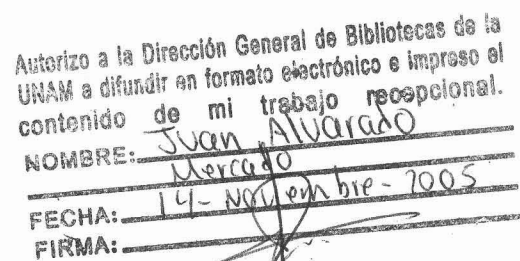 Autorizo a la Dirección General de Bibliotecas de la
UNAM a difundir en formato electrónico e impreso el
contenido de mi trabajo recepcional.
NOMBRE: Juan Alvarado
Mercado
FECHA: 14-Noviembre-2005
FIRMA: